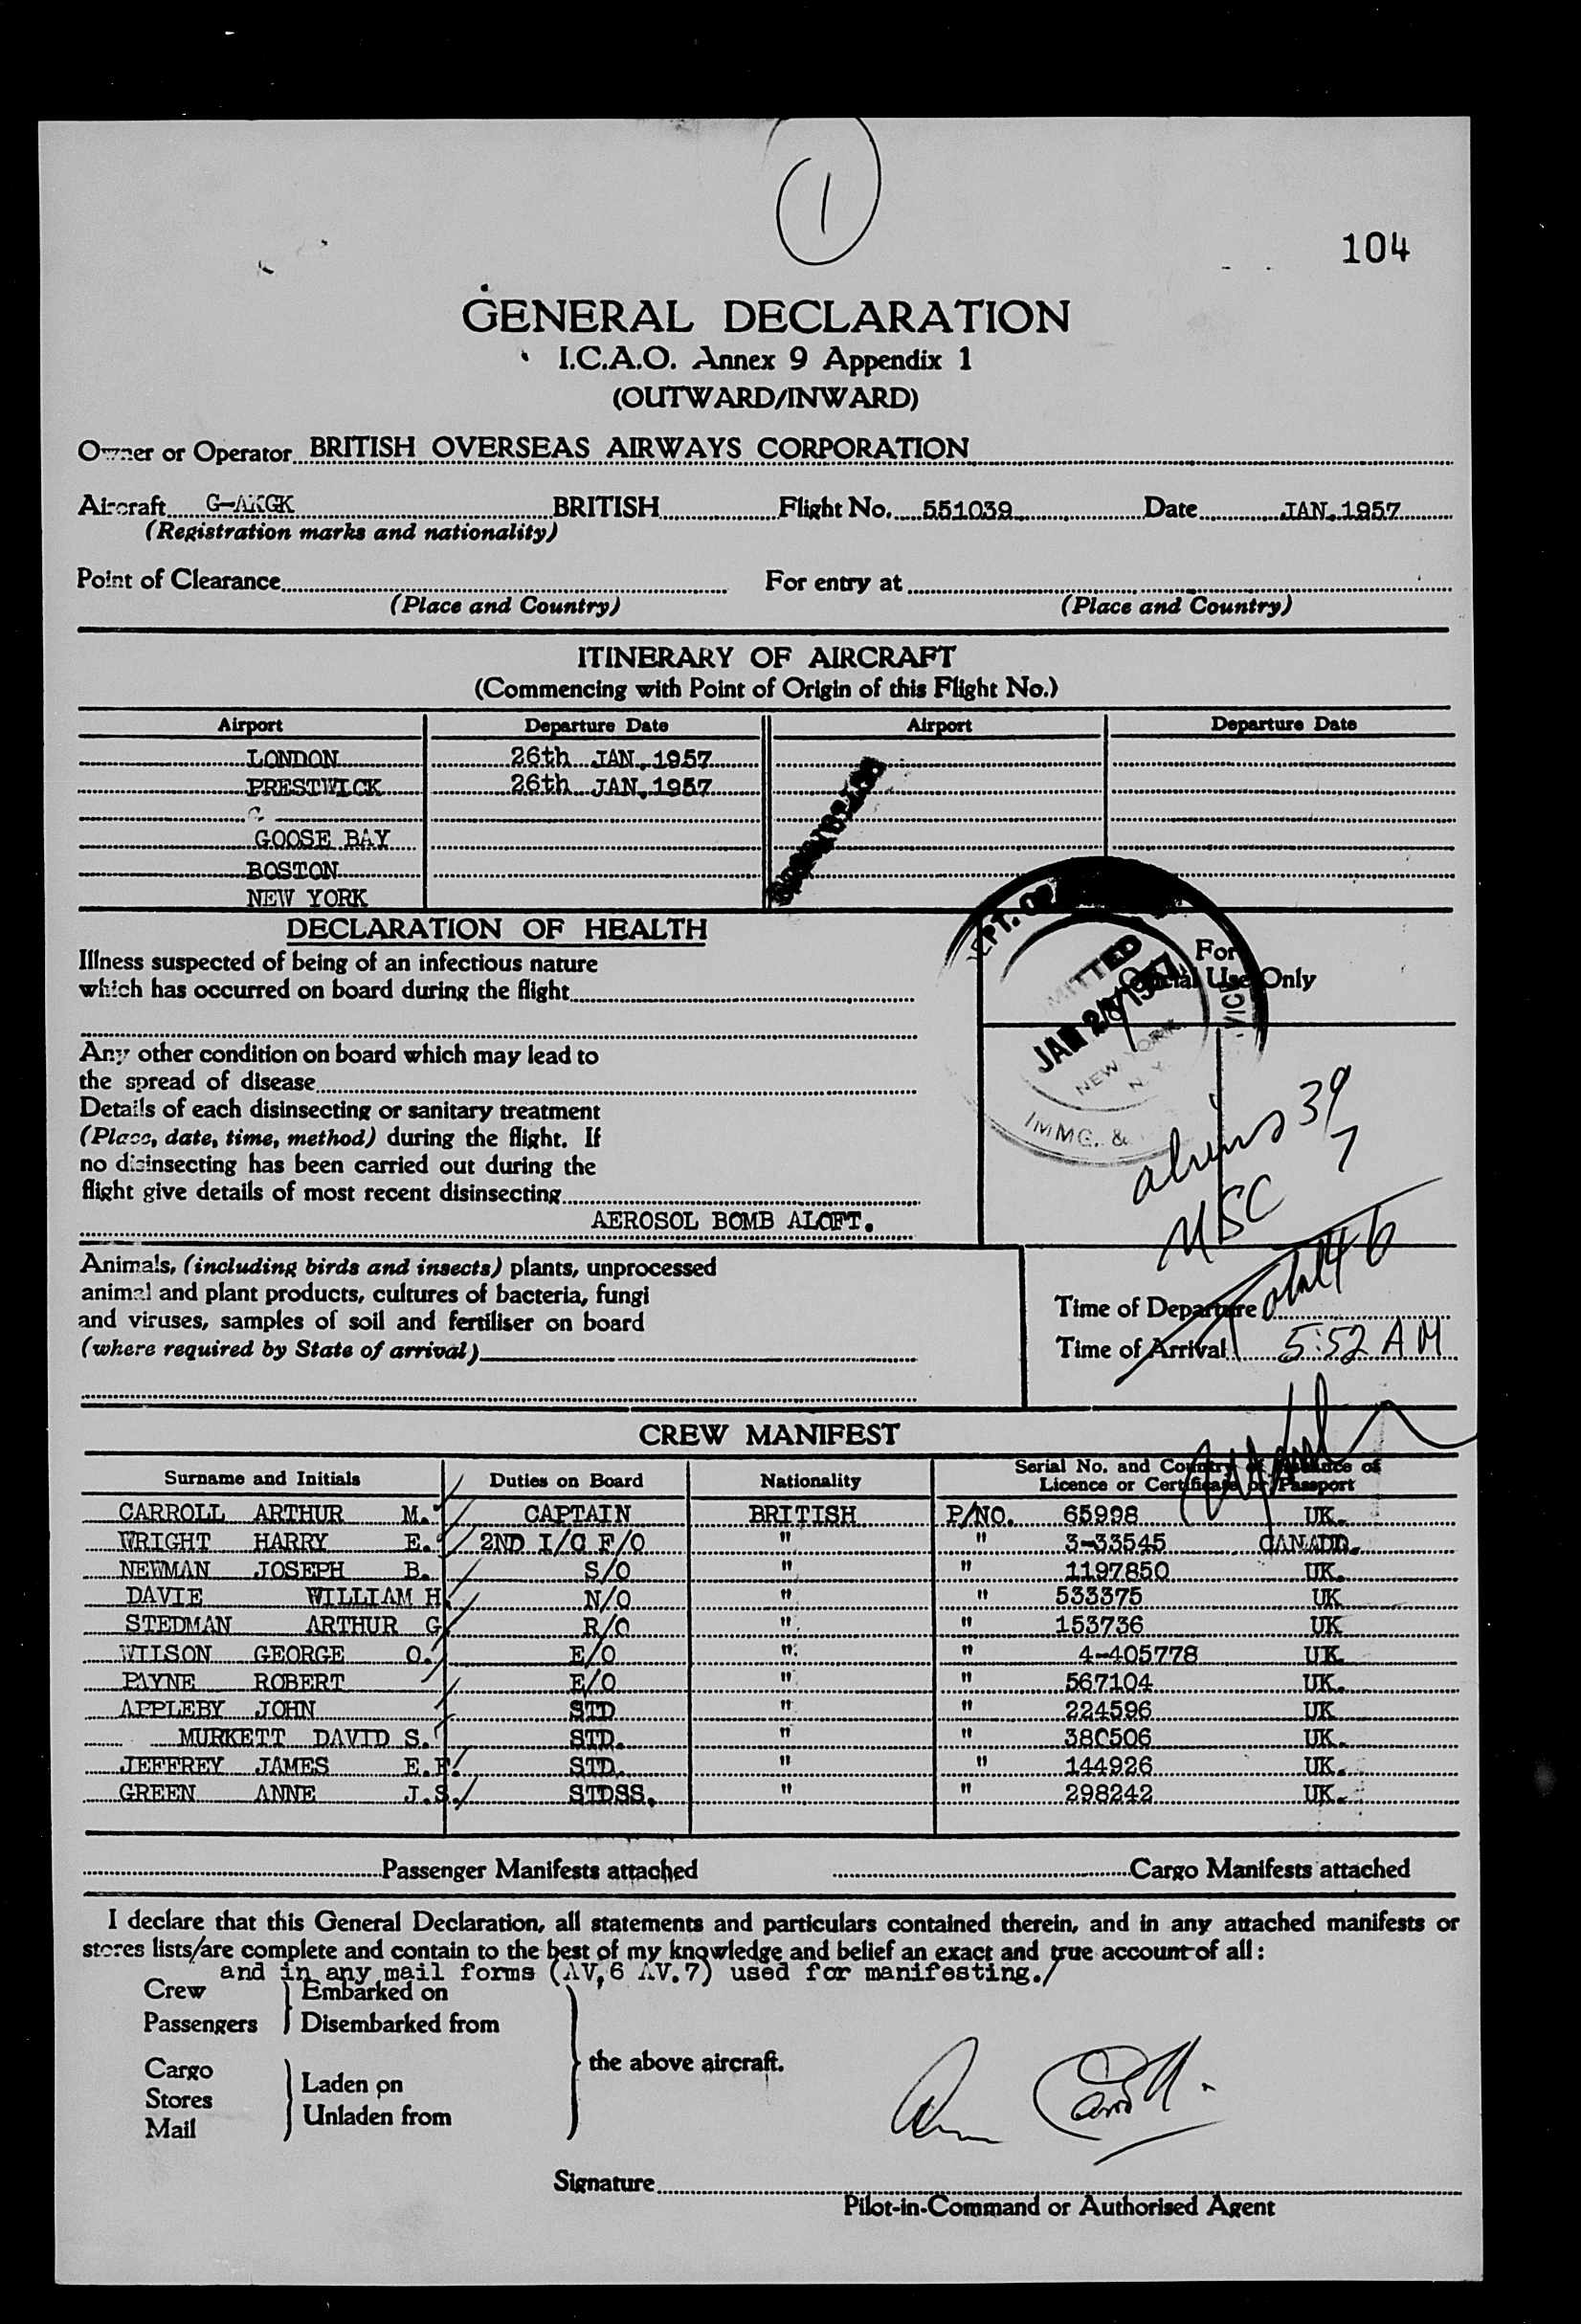 1
104
GENERAL DECLARATION
I.C.A.O. Annex 9 Appendix 1
(OUTWARD/INWARD)
Owner or Operator BRITISH OVERSEAS AIRWAYS CORPORATION
Aircraft G-AKGK BRITISH Flight No. 551039 Date JAN.1957
(Registration marks and nationality)
Point of Clearance For entry at
(Place and Country) (Place and Country)
ITINERARY OF AIRCRAFT
(Commencing with Point of Origin of this Flight No.)
Airport Departure Date Airport Departure Date
LONDON 26th JAN. 1957
PRESTWICK 26th JAN. 1957
GOOSE BAY
BOSTON
NEW YORK
DECLARATION OF HEALTH
Illness suspected of being of an infectious nature
which has occurred on board during the flight
For
Official Use Only
MITTED
JAN 1957
NEW YORK
N. Y.
IMMG. &
Any other condition on board which may lead to
the spread of disease
Details of each disinsecting or sanitary treatment
(Place, date, time, method) during the flight. If
no disinsecting has been carried out during the
flight give details of most recent disinsecting
AEROSOL BOMB ALOFT.
aliens 39
USC 7
46
Animals, (including birds and insects) plants, unprocessed
animal and plant products, cultures of bacteria, fungi
and viruses, samples of soil and fertiliser on board
(where required by State of arrival)
Time of Departure
Time of Arrival 5:52 AM
CREW MANIFEST
Surname and Initials Duties on Board Nationality Serial No. and Country of Issuance of
Licence or Certificate or Passport
CARROLL ARTHUR M. CAPTAIN BRITISH P/NO. 65998 UK.
WRIGHT HARRY E. 2ND I/C F/O " " 3-33545
NEWMAN JOSEPH B. S/O " " 1197850 UK.
DAVIE WILLIAM H N/O " " 533375 UK
STEDMAN ARTHUR G R/O " " 153736 UK
WILSON GEORGE O. E/O " " 4-405778 UK.
PAYNE ROBERT E/O " " 567104 UK.
APPLEBY JOHN STD " " 224596 UK
MURKETT DAVID S. STD. " " 380506 UK.
JEFFREY JAMES E.F. STD. " " 144926 UK.
GREEN ANNE J.S. STDSS. " " 298242 UK.
Passenger Manifests attached Cargo Manifests attached
I declare that this General Declaration, all statements and particulars contained therein, and in any attached manifests or
stores lists/are complete and contain to the best of my knowledge and belief an exact and true account of all:
and in any mail forms (AV,6 AV.7) used for manifesting./
Crew Embarked on
Passengers Disembarked from
the above aircraft.
Cargo Laden on
Stores
Mail Unladen from
Signature
Pilot-in-Command or Authorised Agent